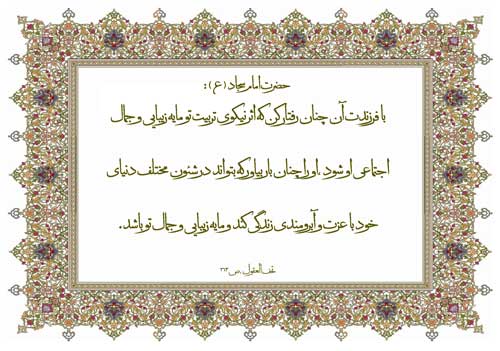 حضرت امام سجاد (ع):
با فرزندت آن چنان رفتار کن که اثر نیکوی تربیت تو مایه زیبایی و جمال
اجتماعی او شود ، او را چنان بار بیاور که بتواند در شئون مختلف دنیای
خود با عزت و آبرومندی زندگی کند و مایه زیبایی و جمال تو باشد.
تحف العقول ، ص ۲۶۳